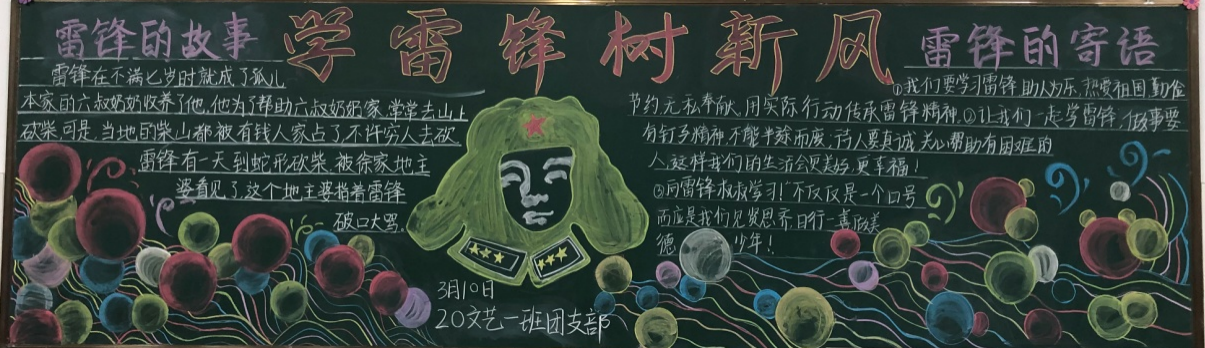 雷锋的故事
学雷锋树新风
雷锋的寄语
雷锋在不满七岁时就成了孤儿
本家的六叔奶奶收养了他.他为了帮助六叔奶奶家.常常去山上
砍柴.可是.当地的柴山都被有钱人家占了.不许穷人去砍
雷锋有一天到蛇形砍柴.被徐家地主
婆看见了.这个地主婆指着雷锋
破口大骂.
①我们要学习雷锋助人为乐.热爱祖国.勤俭
节约.无私奉献.用实际行动传承雷锋精神.②让我们一起学雷锋.做事要
有钉子精神.不能半途而废.待人要真诚.关心帮助有困难的
人.这样我们的生活会更美好.更幸福!
③向雷锋叔叔学习!"不仅仅是一个口号
而应是我们见贤思齐.日行一善做美
德少年!
3月10日
20文艺一班团支部